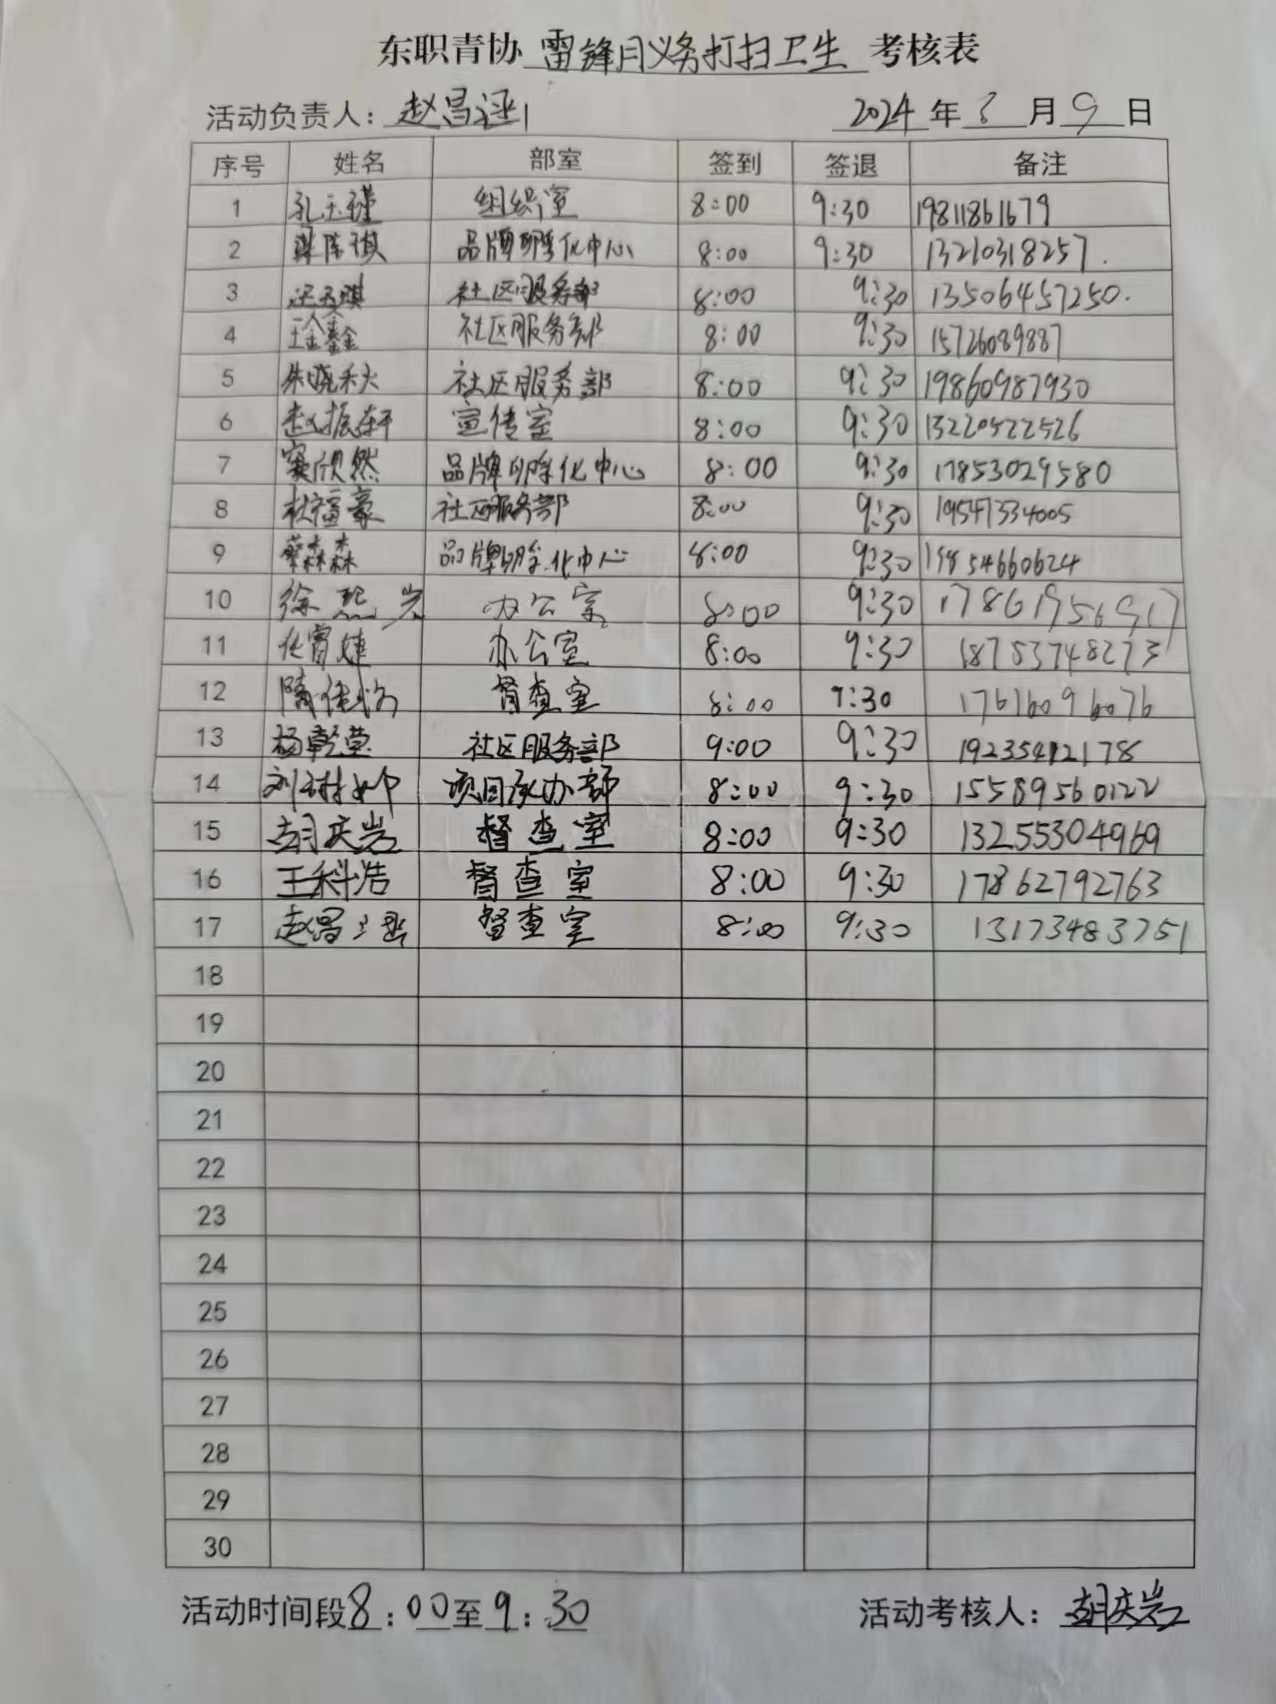 东职青协 雷锋月义务打扫卫生 考核表
活动负责人: 赵昌 2024 年 3 月 9 日
序号 姓名 部室 签到 签退 备注
1 孔玉瑾 组织室 8:00 9:30 19811861679
2 品牌孵化中心 8:00 9:30 13210318257.
3 社区服务部 8:00 9:30 13506457250.
4 王鑫鑫 社区服务部 8:00 9:30 15726089887
5 朱晓秋 社区服务部 8:00 9:30 19860987930
6 赵振轩 宣传室 8:00 9:30 13220522526
7 窦欣然 品牌孵化中心 8:00 9:30 17853029580
8 杜福豪 社区服务部 8:00 9:30 19547334005
9 蔡森森 品牌孵化中心 8:00 9:30 19854660624
10 徐熙岩 办公室 8:00 9:30 17861956917
11 办公室 8:00 9:30 18753748273
12 隋佳 督查室 8:00 9:30 17616096076
13 杨乾莹 社区服务部 9:00 9:30 19235412178
14 刘树 项目承办部 8:00 9:30 15589560122
15 胡庆岩 督查室 8:00 9:30 13255304969
16 王科浩 督查室 8:00 9:30 17862792763
17 赵昌 督查室 8:00 9:30 13173483751
18
19
20
21
22
23
24
25
26
27
28
29
30
活动时间段8:00至9:30 活动考核人: 胡庆岩